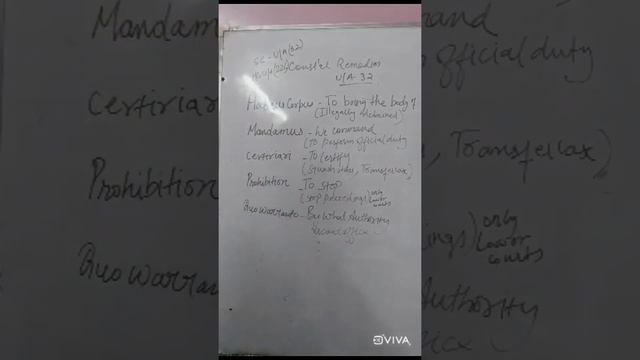 SC - U/A (32)
Const'al Remedies
U/A 32
Habeus Corpus - To bring the body of
(Illegally detained)
Mandamus - We command
(To perform official duty
Certiriari - To Certify
(Quash order, Transfer
Prohibition - To stop
(stop proceedings) only
lower
courts
Quo Warranto - By What Authority
VIVA